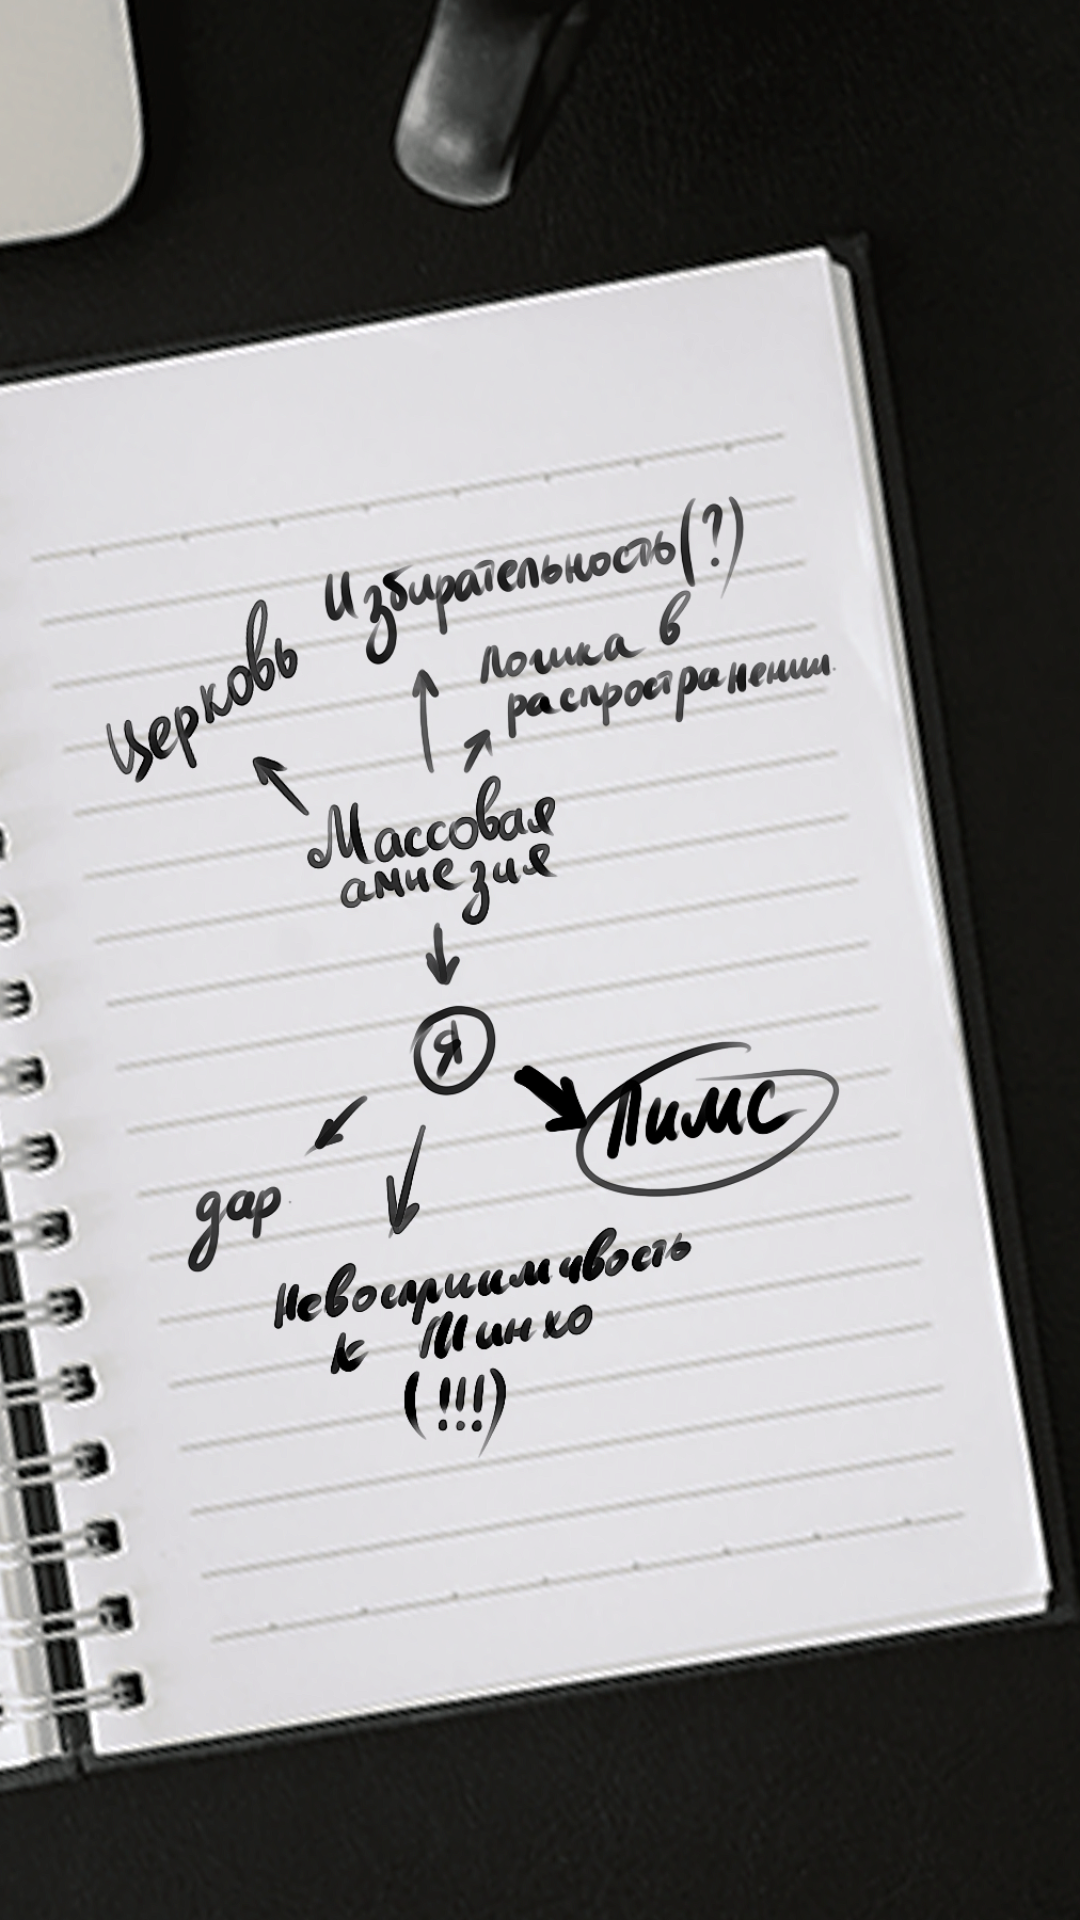 Избирательность(?)
Церковь
Логика в
распространении.
Массовая
амнезия
Я
Пимс
дар
Невосприимчвость
к Минхо
(!!!)